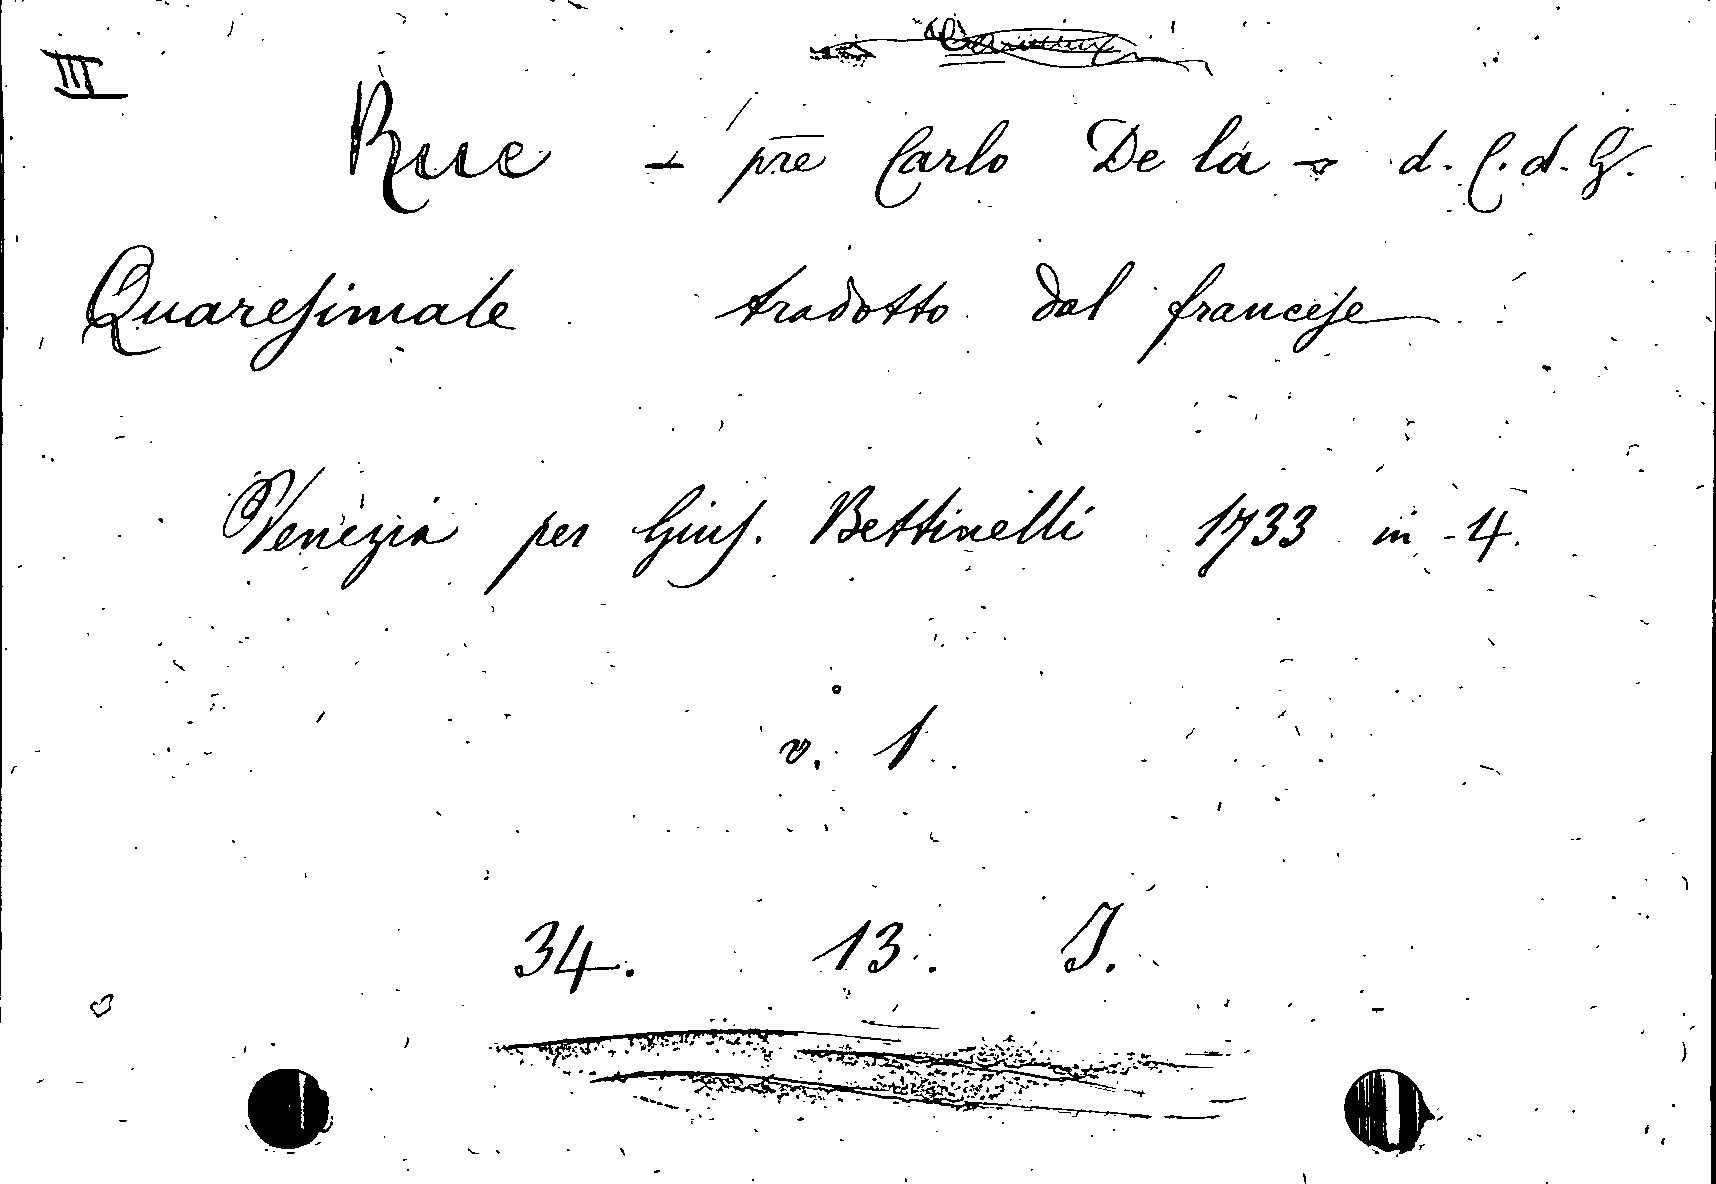 III
Rue - p̄re Carlo De la - d. C. d. G.
Quaresimale tradotto dal francese
Venezia per Gius. Bettinelli 1733 in 4.
v. 1
34. 13. J.